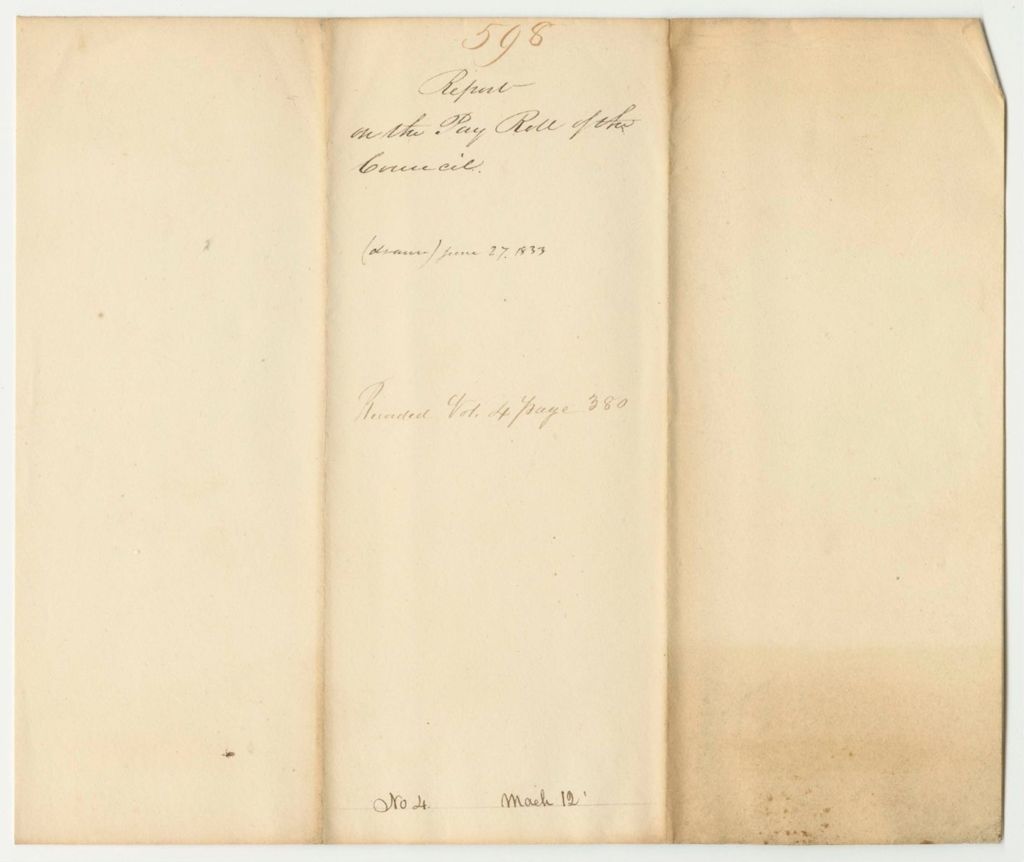 598
Report
on the Pay Roll of the
Council.
(drawn) June 27. 1833
Recorded Vol. 4 page 380
No 4. Mach 12